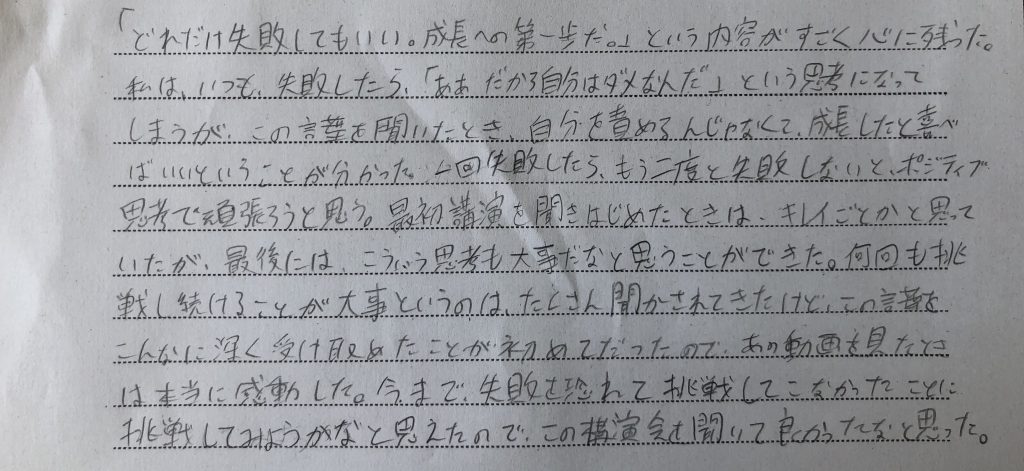 「どれだけ失敗してもいい。成長への第一歩だ。」という内容がすごく心に残った。
私は、いつも、失敗したら、「ああ だから自分はダメなんだ」という思考になって
しまうが、この言葉を聞いたとき、自分を責めるんじゃなくて、成長したと喜べ
ばいいということが分かった。1回失敗したら、もう二度と失敗しないと、ポジティブ
思考で頑張ろうと思う。最初講演を聞きはじめたときは、キレイごとかと思って
いたが、最後には、こういう思考も大事だなと思うことができた。何回も挑
戦し続けることが大事というのは、たくさん聞かされてきたけど、この言葉を
こんなに深く受け取めたことが初めてだったので、あの動画を見たとき
は本当に感動した。今まで、失敗を恐れて挑戦してこなかったことに
挑戦してみようかなと思えたので、この講演会を聞いて良かったなと思った。